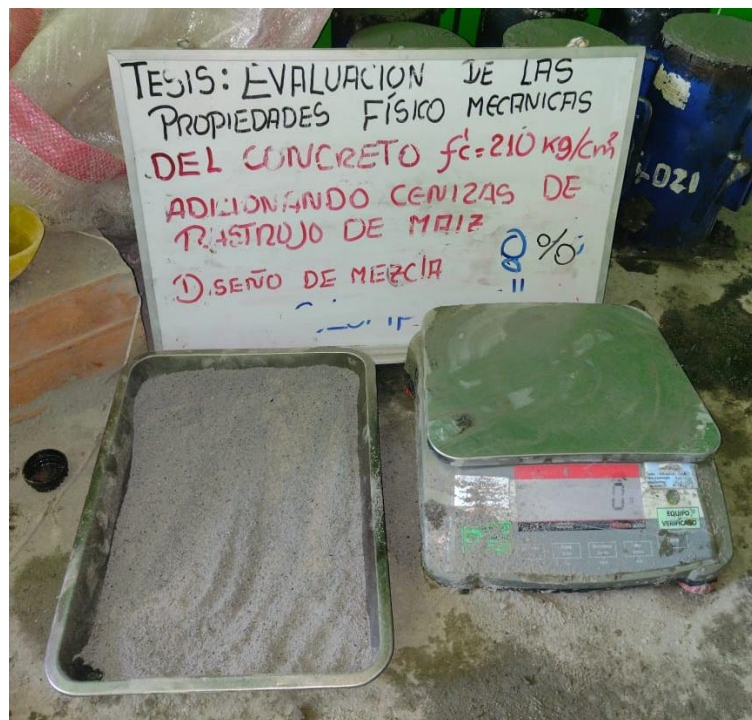 TESIS: EVALUACION DE LAS
PROPIEDADES FÍSICO MECANICAS
DEL CONCRETO f'c=210 Kg/cm²
ADICIONANDO CENIZAS DE
RASTROJO DE MAIZ
DISEÑO DE MEZCLA 8 %
EQUIPO
VERIFICADO